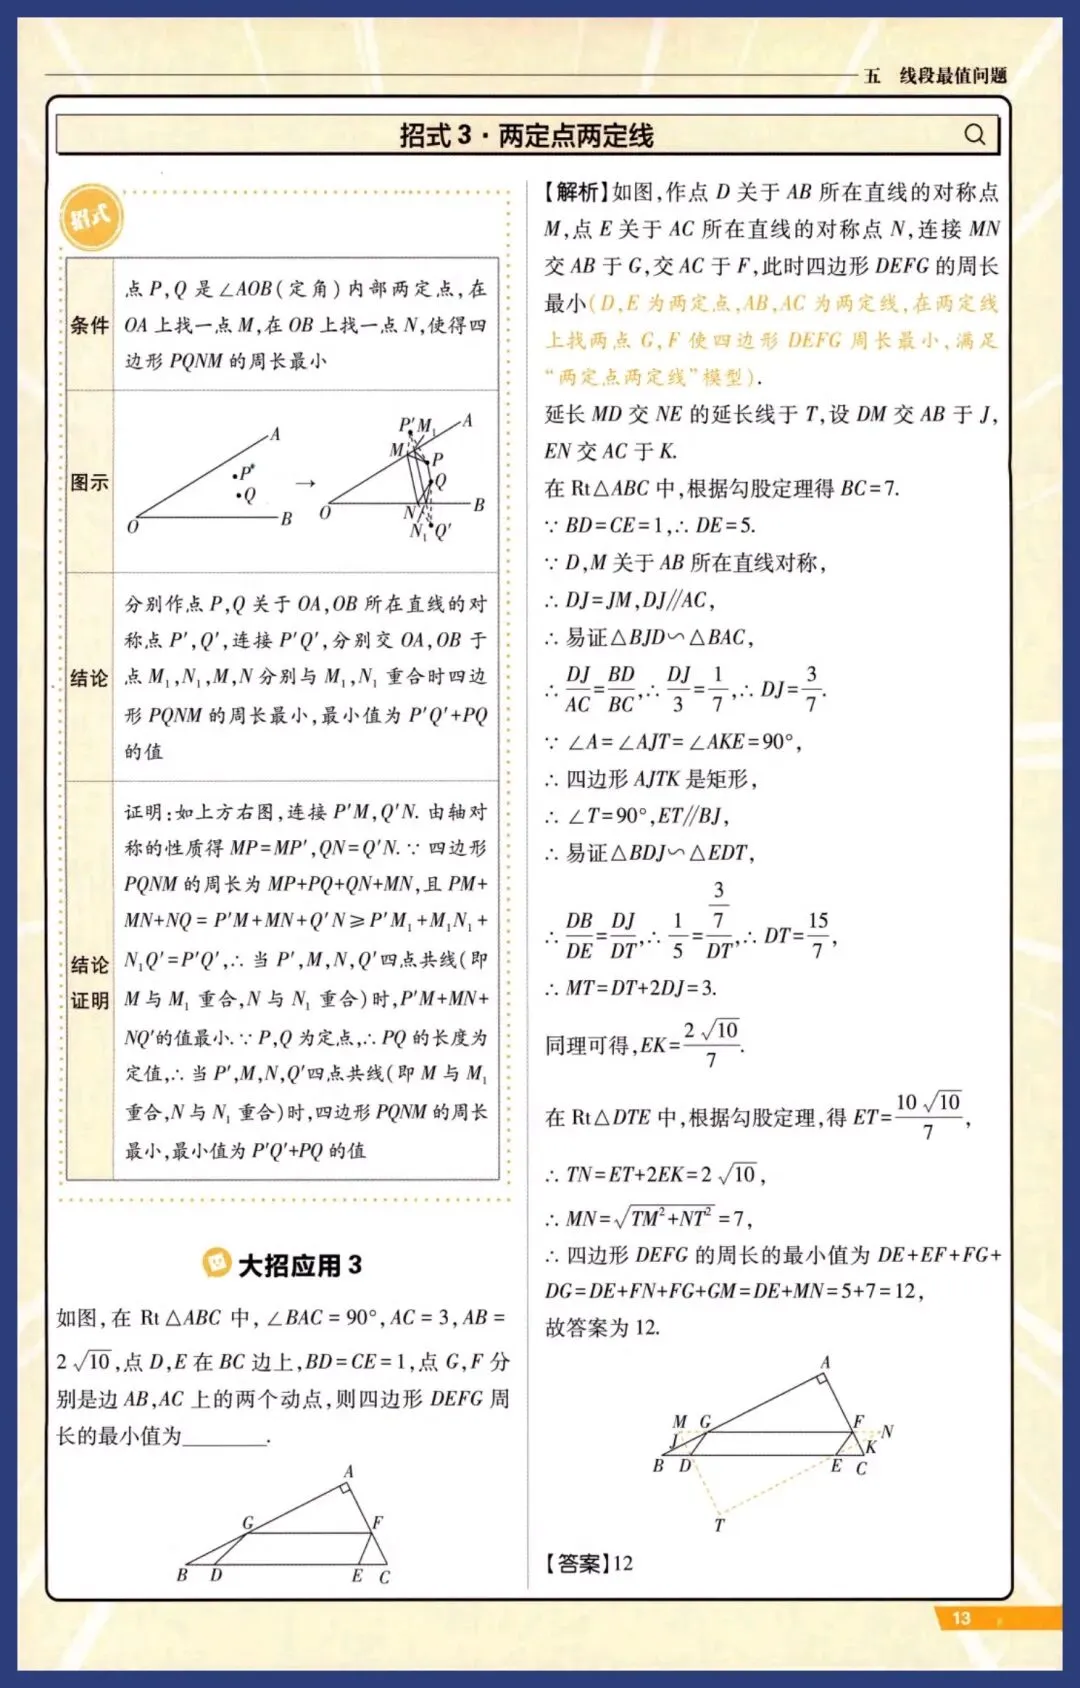 五 线段最值问题
招式 3·两定点两定线
招式
条件
点 P,Q 是 ∠AOB(定角)内部两定点,在
OA 上找一点 M,在 OB 上找一点 N,使得四
边形 PQNM 的周长最小
图示
A
P
Q
O
B
→
P′
M₁
A
M
P
Q
O
N
B
N₁
Q′
结论
分别作点 P,Q 关于 OA,OB 所在直线的对
称点 P′,Q′,连接 P′Q′,分别交 OA,OB 于
点 M₁,N₁,M,N 分别与 M₁,N₁ 重合时四边
形 PQNM 的周长最小,最小值为 P′Q′+PQ
的值
结论
证明
证明:如上方右图,连接 P′M,Q′N. 由轴对
称的性质得 MP=MP′,QN=Q′N.∵ 四边形
PQNM 的周长为 MP+PQ+QN+MN,且 PM+
MN+NQ = P′M+MN+Q′N⩾P′M₁+M₁N₁+
N₁Q′=P′Q′,∴ 当 P′,M,N,Q′四点共线(即
M 与 M₁ 重合,N 与 N₁ 重合)时,P′M+MN+
NQ′的值最小.∵ P,Q 为定点,∴ PQ 的长度为
定值,∴ 当 P′,M,N,Q′四点共线(即 M 与 M₁
重合,N 与 N₁ 重合)时,四边形 PQNM 的周长
最小,最小值为 P′Q′+PQ 的值
大招应用 3
如图,在 Rt△ABC 中,∠BAC = 90°,AC = 3,AB =
2√10,点 D,E 在 BC 边上,BD=CE=1,点 G,F 分
别是边 AB,AC 上的两个动点,则四边形 DEFG 周
长的最小值为________.
A
G
F
B
D
E
C
【解析】如图,作点 D 关于 AB 所在直线的对称点
M,点 E 关于 AC 所在直线的对称点 N,连接 MN
交 AB 于 G,交 AC 于 F,此时四边形 DEFG 的周长
最小(D,E 为两定点,AB,AC 为两定线,在两定线
上找两点 G,F 使四边形 DEFG 周长最小,满足
“两定点两定线”模型).
延长 MD 交 NE 的延长线于 T,设 DM 交 AB 于 J,
EN 交 AC 于 K.
在 Rt△ABC 中,根据勾股定理得 BC=7.
∵ BD=CE=1,∴ DE=5.
∵ D,M 关于 AB 所在直线对称,
∴ DJ=JM,DJ∥AC,
∴ 易证△BJD∽△BAC,
∴ DJ/AC=BD/BC,∴ DJ/3=1/7,∴ DJ=3/7.
∵ ∠A=∠AJT=∠AKE=90°,
∴ 四边形 AJTK 是矩形,
∴ ∠T=90°,ET∥BJ,
∴ 易证△BDJ∽△EDT,
∴ DB/DE=DJ/DT,∴ 1/5=(3/7)/DT,∴ DT=15/7,
∴ MT=DT+2DJ=3.
同理可得,EK=2√10/7.
在 Rt△DTE 中,根据勾股定理,得 ET=10√10/7,
∴ TN=ET+2EK=2√10,
∴ MN=√(TM²+NT²)=7,
∴ 四边形 DEFG 的周长的最小值为 DE+EF+FG+
DG=DE+FN+FG+GM=DE+MN=5+7=12,
故答案为 12.
A
M
G
F
N
J
K
B
D
E
C
T
【答案】12
13